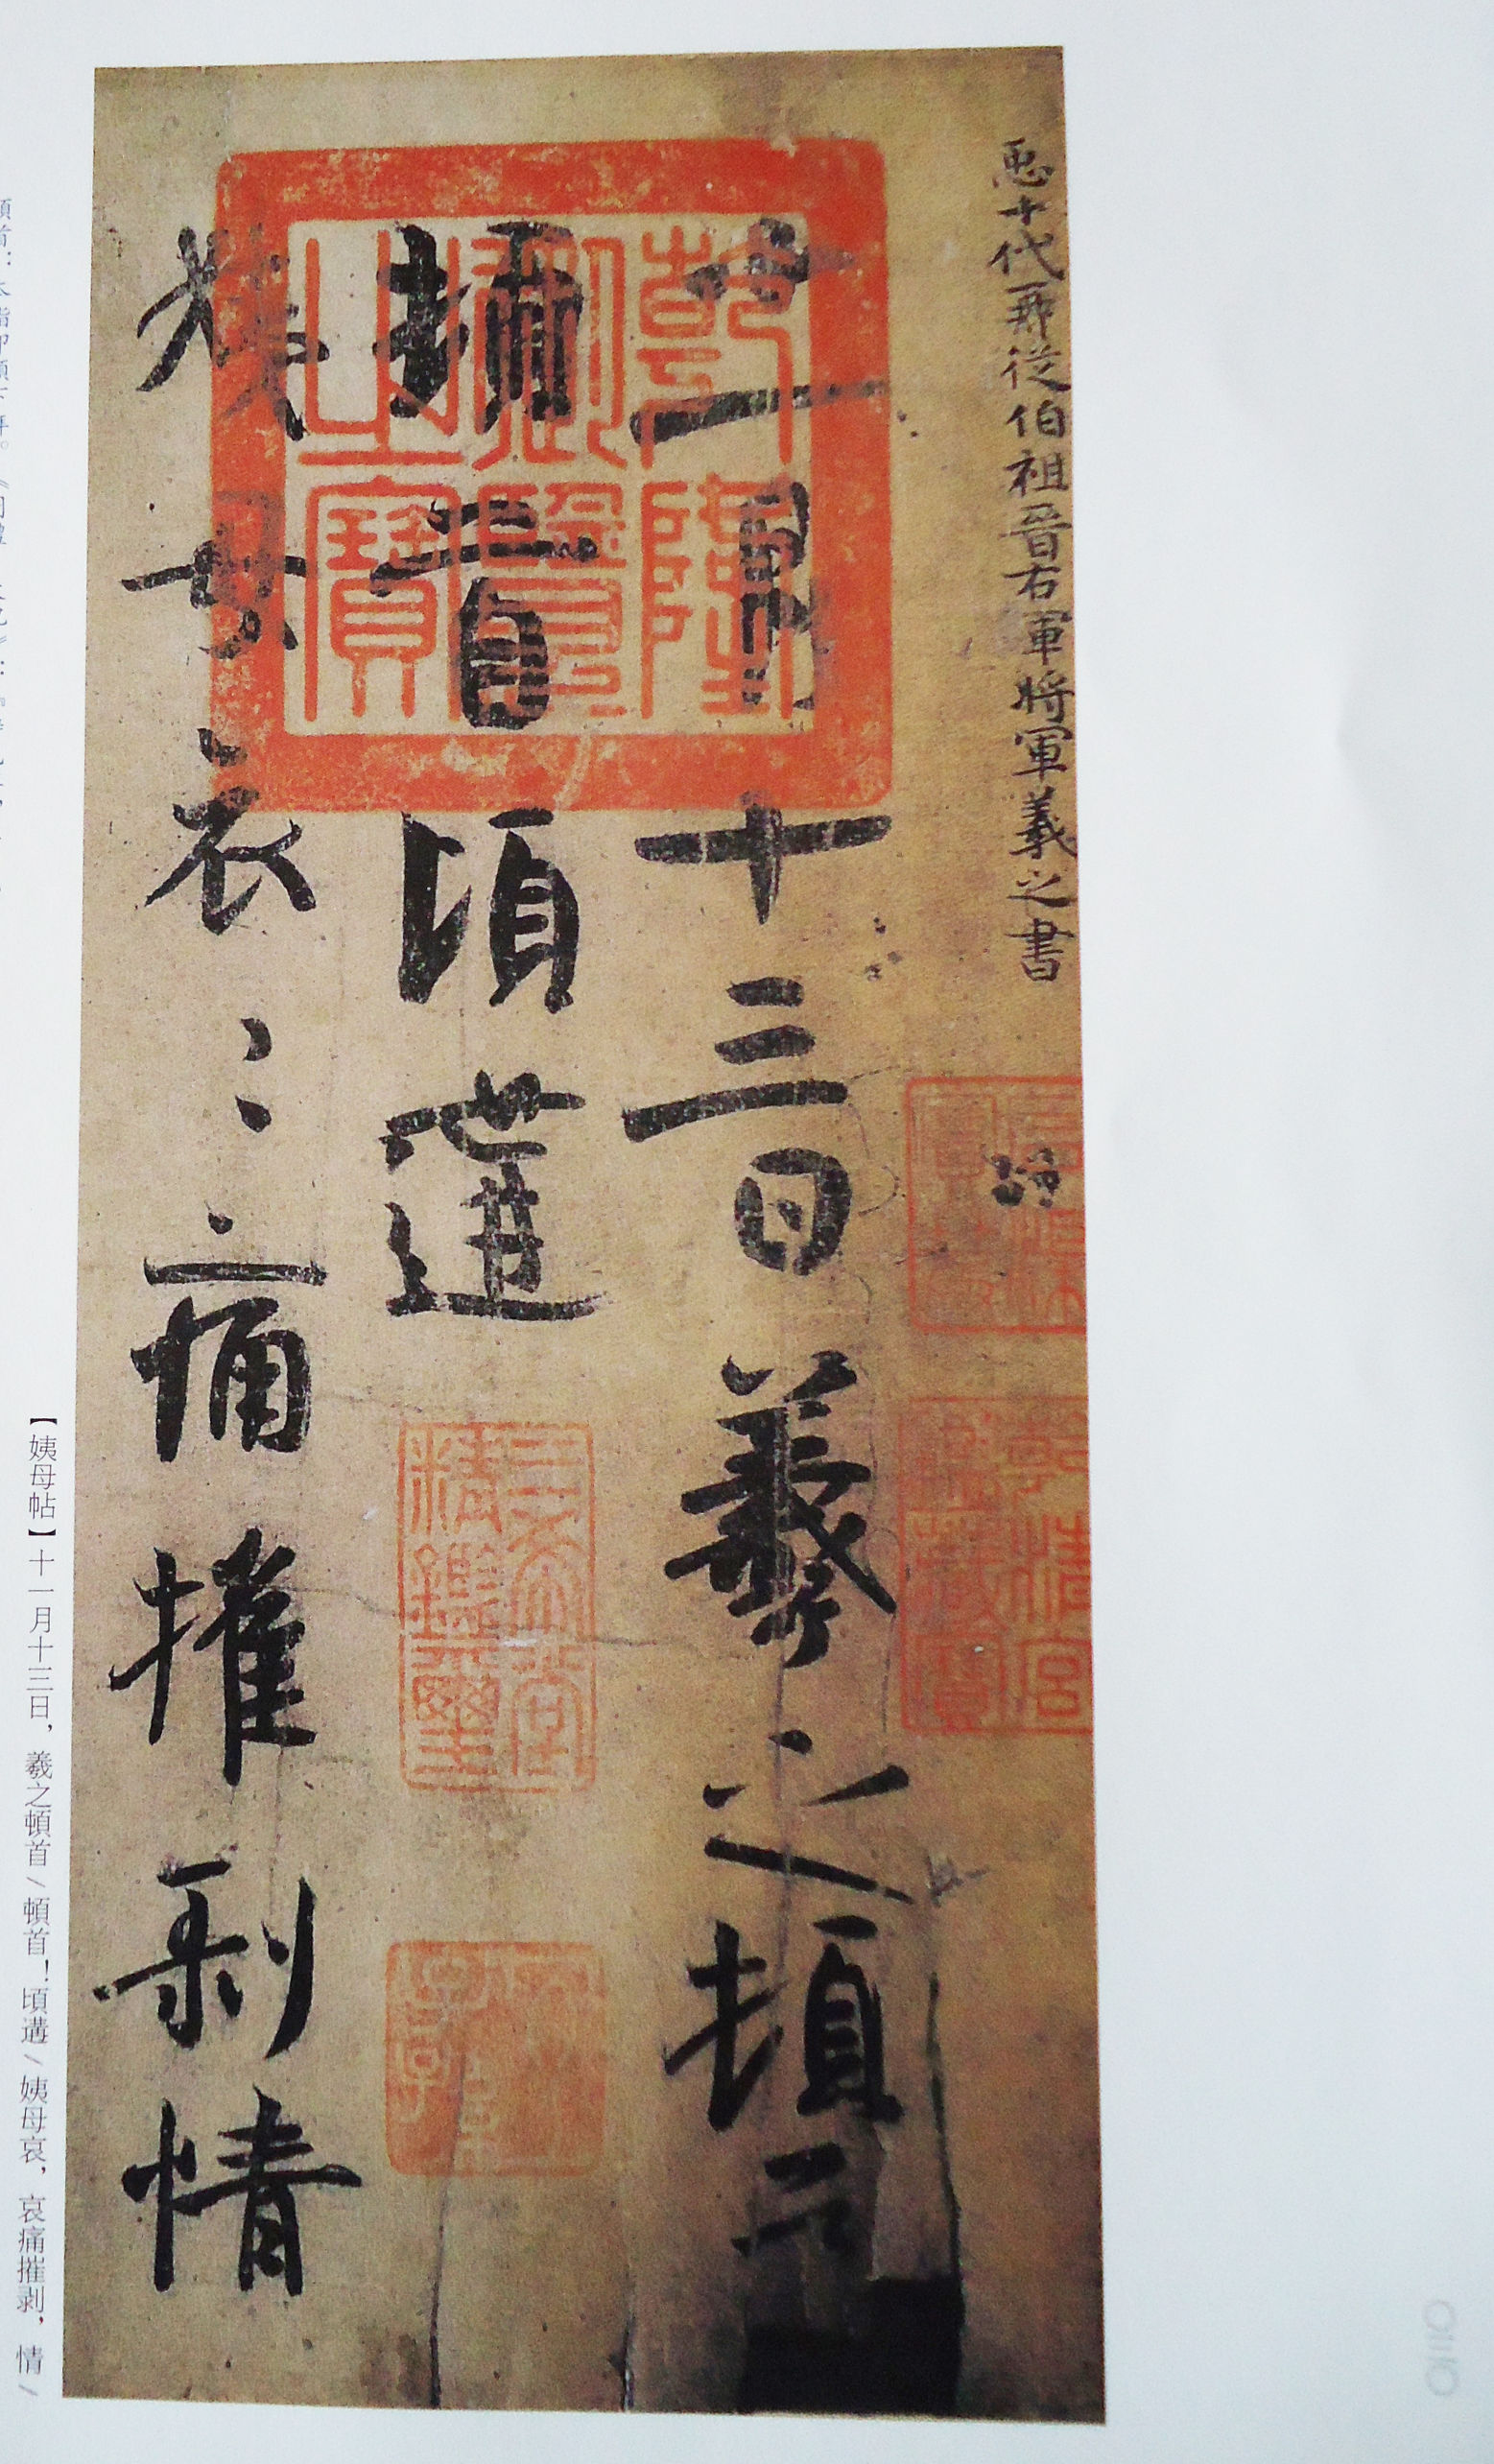 臣十代再從伯祖晉右軍將軍羲之書
十一月十三日羲之頓
首頓首頃遘
姨母哀哀痛摧剥情
乾隆御覽之寶
三希堂精鑑璽
【姨母帖】十一月十三日，羲之頓首/頓首！頃遘/姨母哀，哀痛摧剥，情/